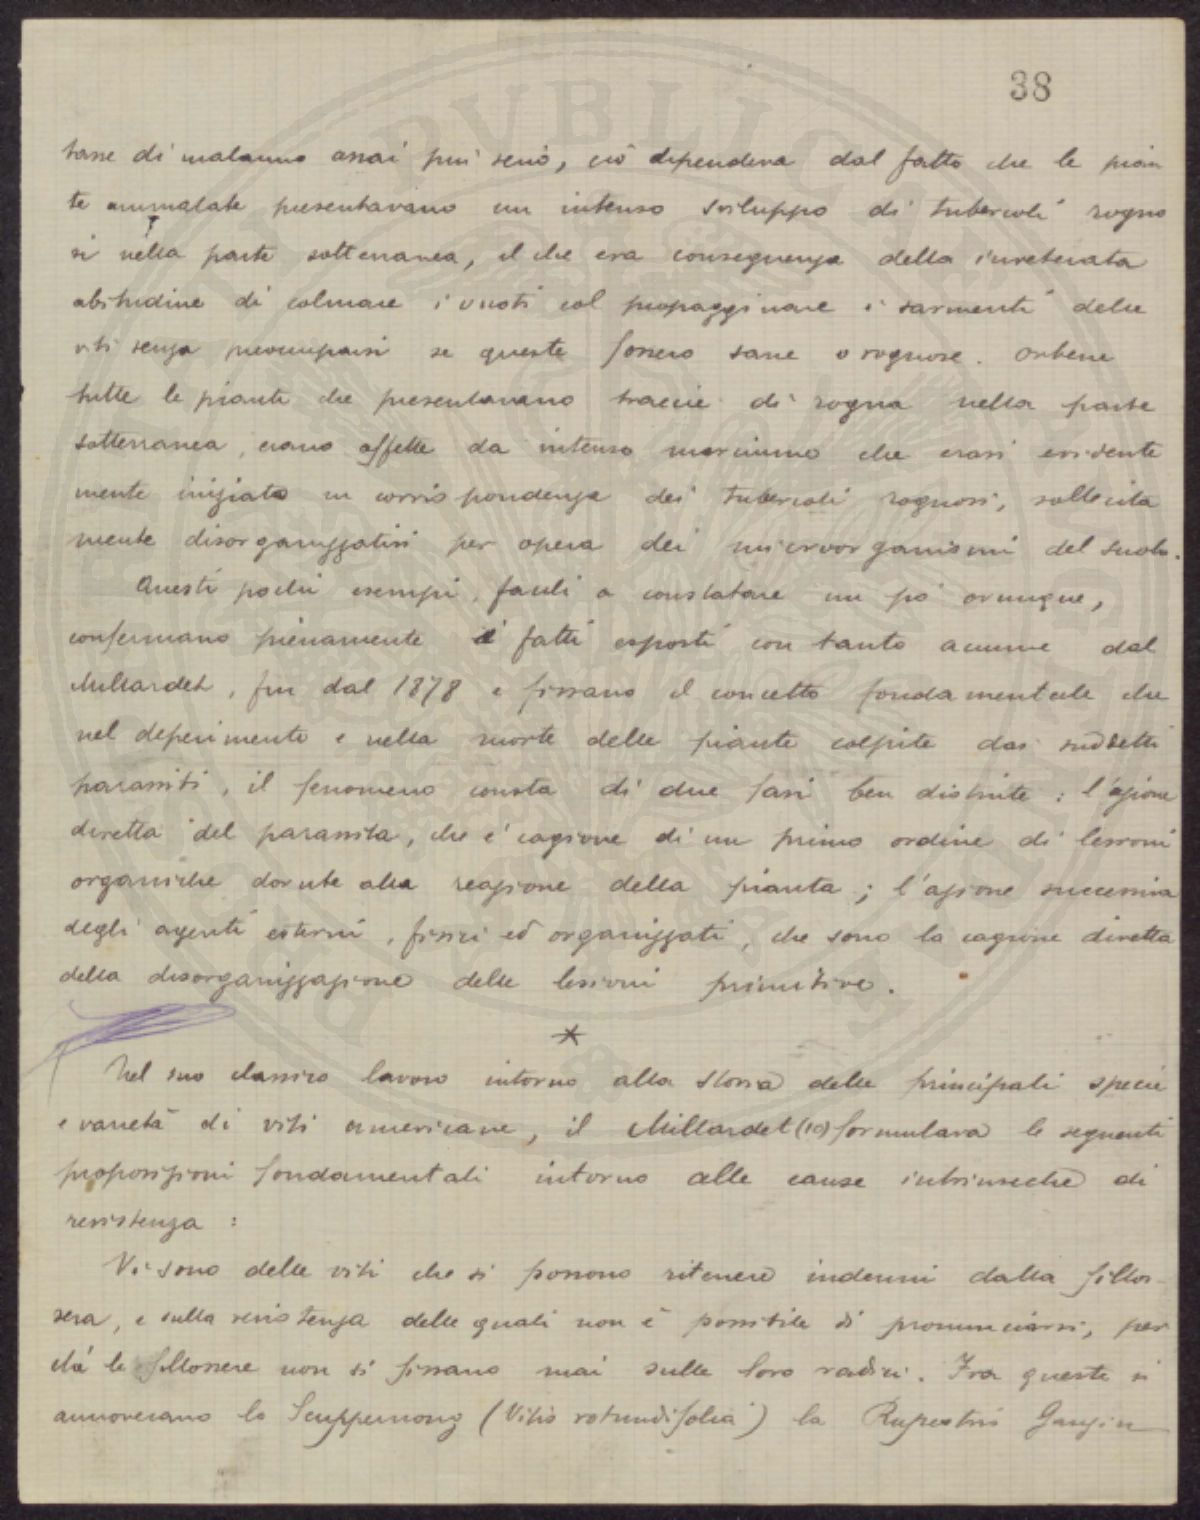 38
tasse di malanno assai più serio, ciò dipendeva dal fatto che le pian
te ammalate presentavano un intenso sviluppo di tubercoli rogno
si nella parte sotterranea, il che era conseguenza della inveterata
abitudine di colmare i vuoti col propagginare i sarmenti delle
viti senza preoccuparsi se queste fossero sane o rognose. Orbene
tutte le piante che presentavano traccie di rogna nella parte
sotterranea, erano affette da intenso marciume che erasi evidente
mente iniziato in corrispondenza dei tubercoli rognosi, sollecita
mente disorganizzatisi per opera dei microorganismi del suolo.
Questi pochi esempi, facili a constatare un pò ovunque,
confermano pienamente i fatti esposti con tanto acume dal
Millardet, fin dal 1878 e fissano il concetto fondamentale che
nel deperimento e nella morte delle piante colpite dai suddetti
parassiti, il fenomeno consta di due fasi ben distinte: l'azione
diretta del parassita, che è cagione di un primo ordine di lesioni
organiche dovute alla reazione della pianta; l'azione successiva
degli agenti esterni, fisici ed organizzati, che sono la cagione diretta
della disorganizzazione delle lesioni primitive.
*
Nel suo classico lavoro intorno alla storia delle principali specie
e varietà di viti americane, il Millardet (10) formulava le seguenti
proposizioni fondamentali intorno alle cause intrinseche di
resistenza:
Vi sono delle viti che si possono ritenere indenni dalla fillos-
sera, e sulla resistenza delle quali non è possibile di pronunciarsi, per
chè le fillossere non si fissano mai sulle loro radici. Fra queste si
annoverano lo Scuppernong (Vitis rotundifolia) la Rupestris